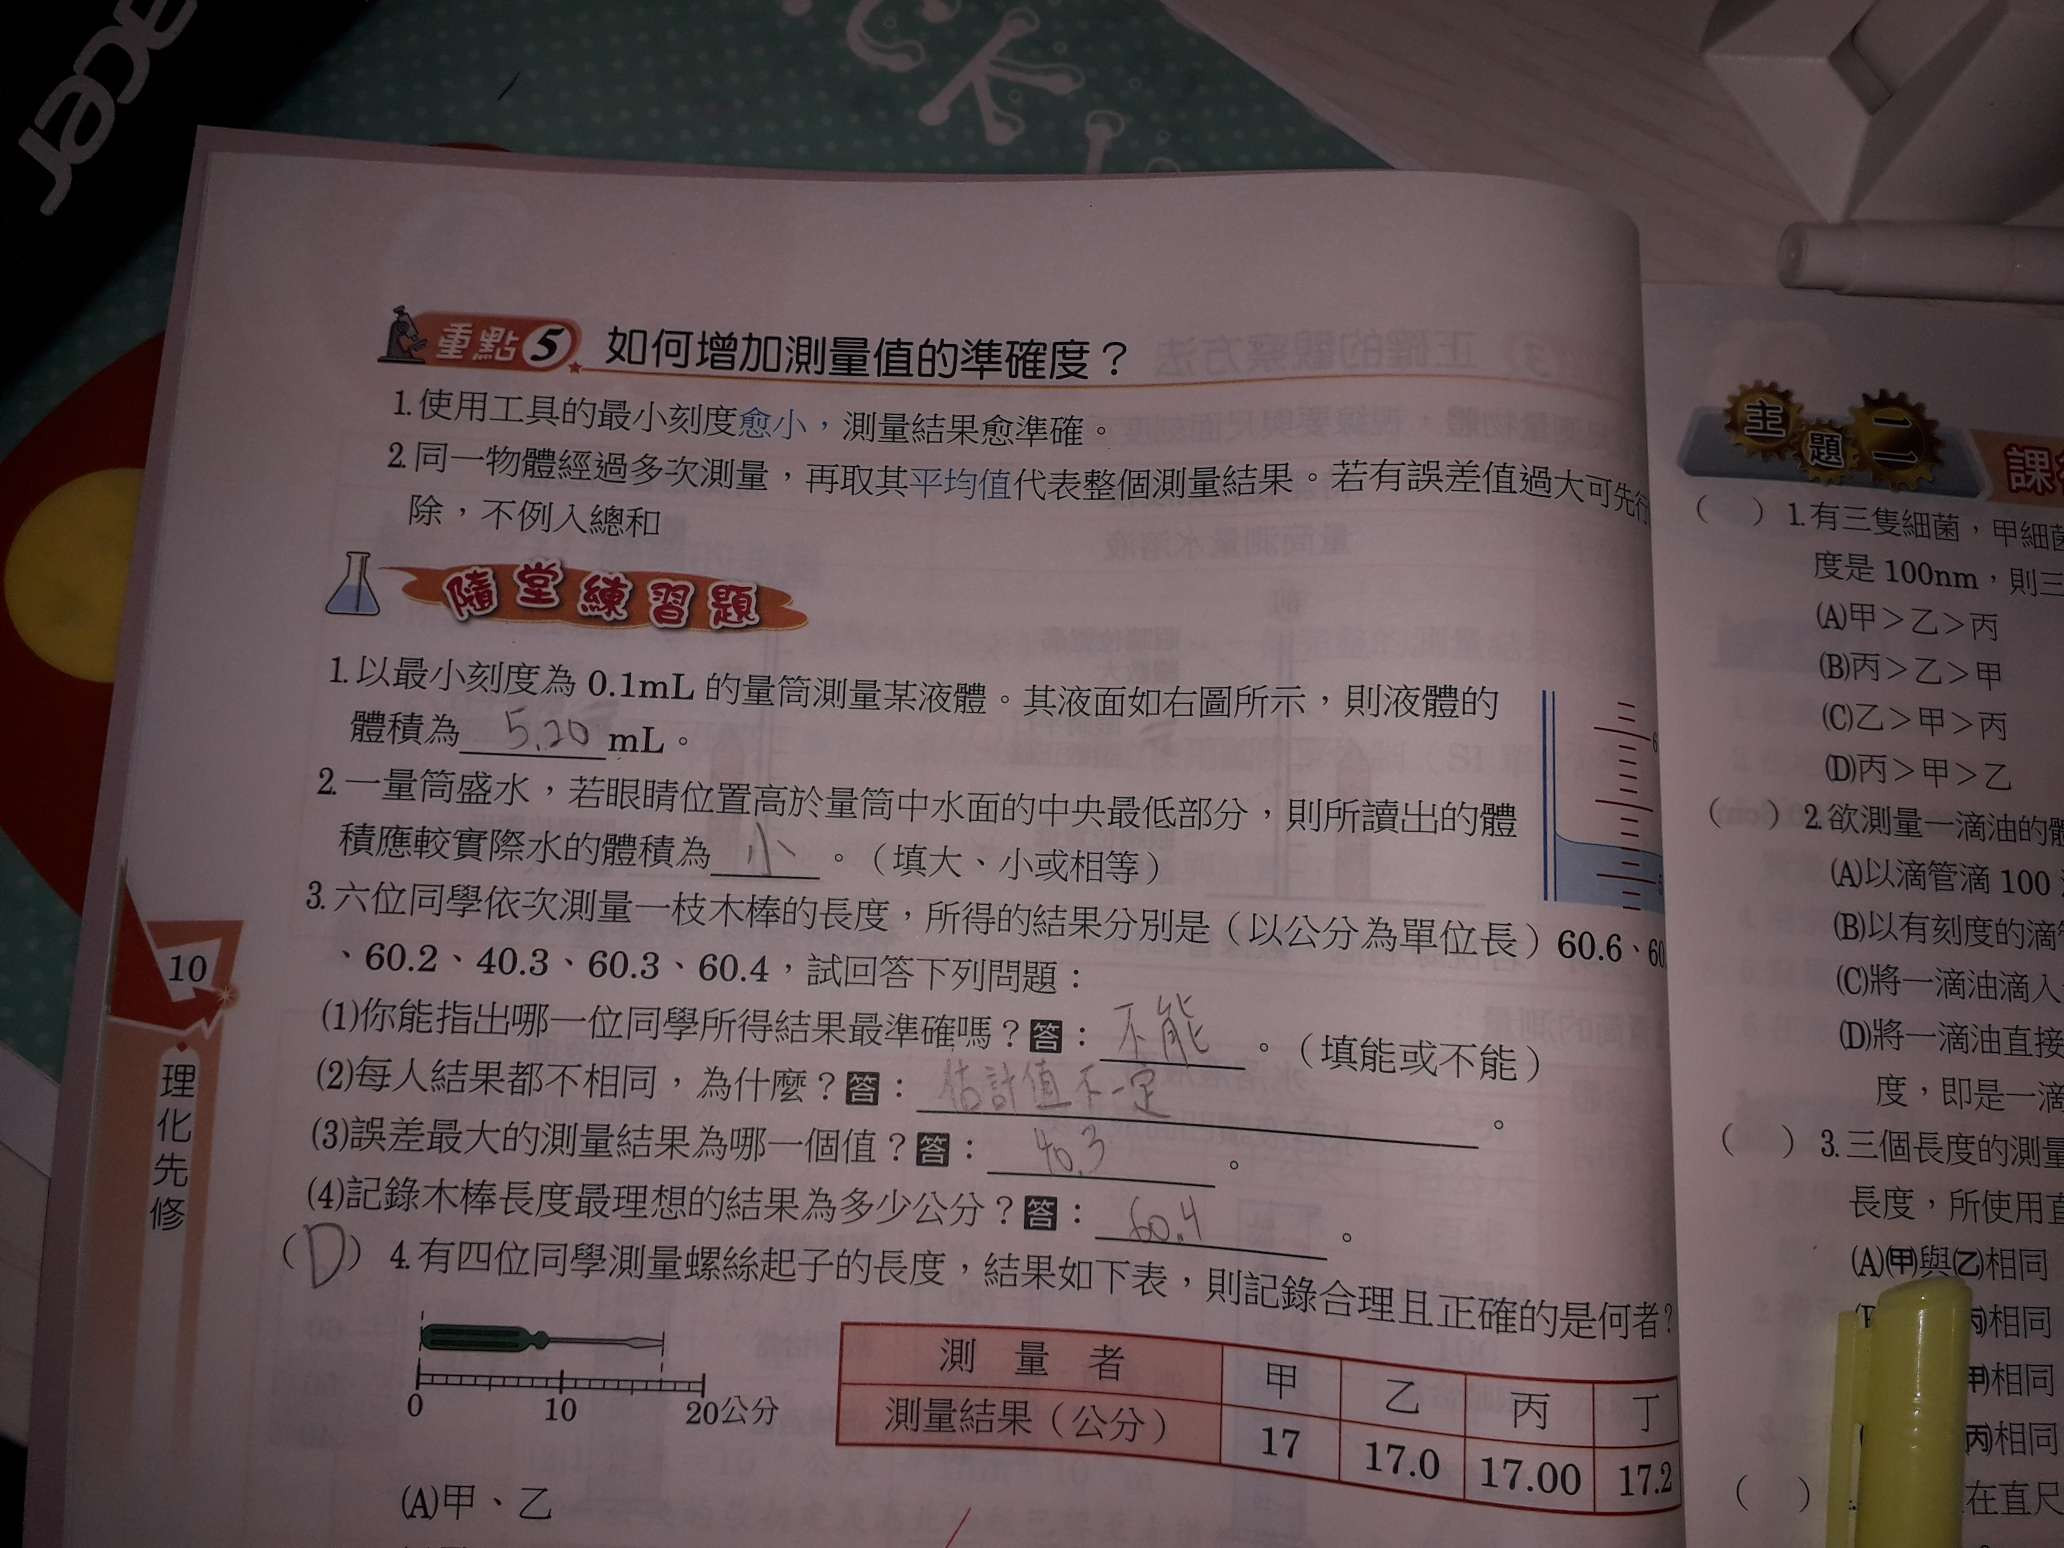 acer
重點5 如何增加測量值的準確度？
1.使用工具的最小刻度愈小，測量結果愈準確。
2.同一物體經過多次測量，再取其平均值代表整個測量結果。若有誤差值過大可先行
除，不例入總和
隨堂練習題
1.以最小刻度為 0.1mL 的量筒測量某液體。其液面如右圖所示，則液體的
體積為 5.20 mL。
6
5
2.一量筒盛水，若眼睛位置高於量筒中水面的中央最低部分，則所讀出的體
積應較實際水的體積為 小 。（填大、小或相等）
3.六位同學依次測量一枝木棒的長度，所得的結果分別是（以公分為單位長）60.6、60
、60.2、40.3、60.3、60.4，試回答下列問題：
(1)你能指出哪一位同學所得結果最準確嗎？答： 不能 。（填能或不能）
(2)每人結果都不相同，為什麼？答： 估計值不一定 。
(3)誤差最大的測量結果為哪一個值？答： 40.3 。
(4)記錄木棒長度最理想的結果為多少公分？答： 60.4 。
（D）4.有四位同學測量螺絲起子的長度，結果如下表，則記錄合理且正確的是何者？
0 10 20公分
測量者 甲 乙 丙 丁
測量結果（公分） 17 17.0 17.00 17.2
(A)甲、乙
10
理化先修
主題二 課
（ ）1.有三隻細菌，甲細菌
度是 100nm，則三
(A)甲＞乙＞丙
(B)丙＞乙＞甲
(C)乙＞甲＞丙
(D)丙＞甲＞乙
（ ）2.欲測量一滴油的體
(A)以滴管滴 100
(B)以有刻度的滴管
(C)將一滴油滴入
(D)將一滴油直接
度，即是一滴
（ ）3.三個長度的測量
長度，所使用直
(A)(甲)與(乙)相同
(丙)相同
(甲)相同
(丙)相同
（ ）
在直尺